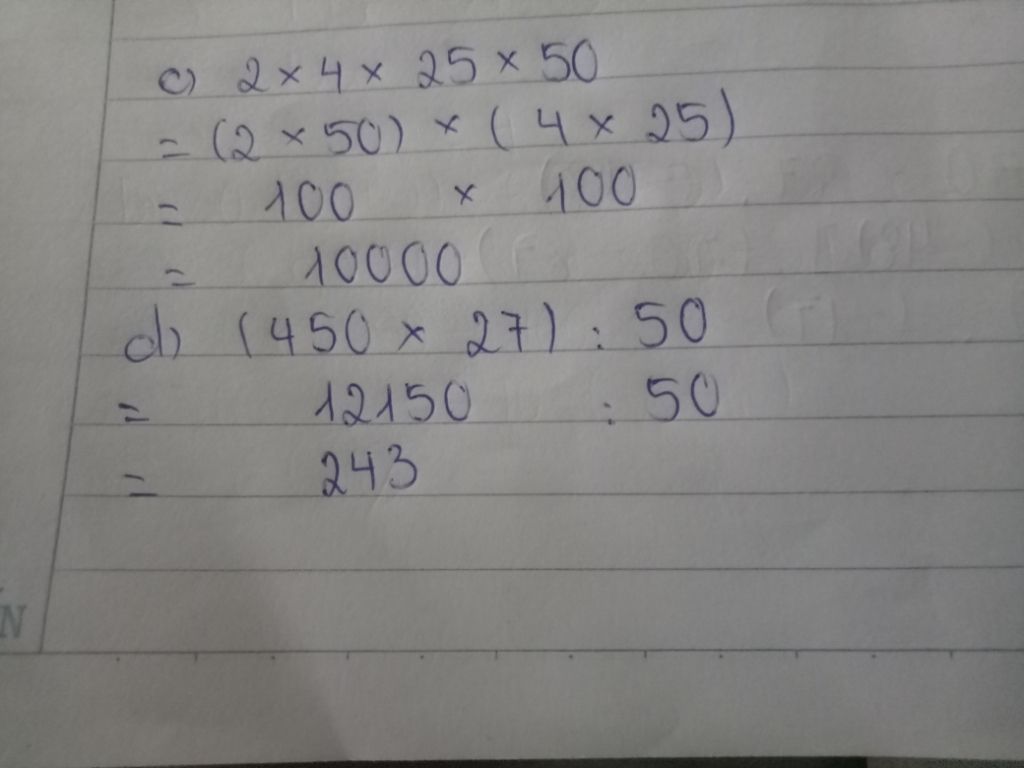 c) 2 × 4 × 25 × 50
= (2 × 50) × ( 4 × 25)
= 100 × 100
= 10000
d) (450 × 27) : 50
= 12150 : 50
= 243